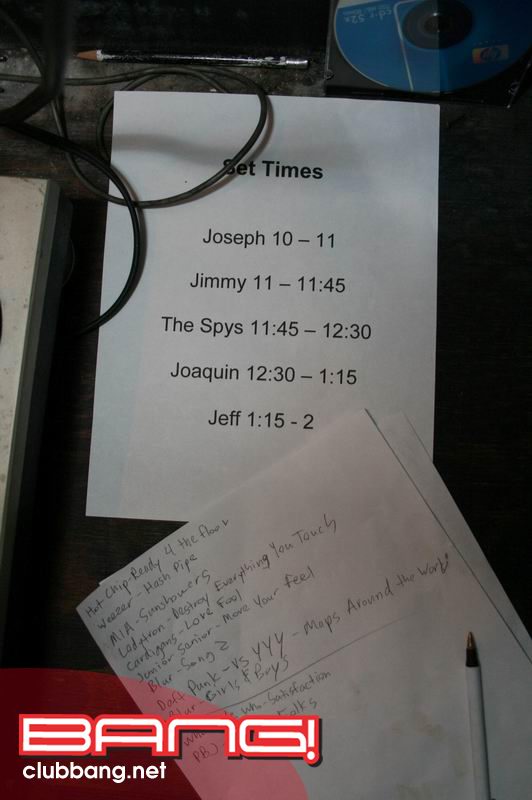 cd-r 52x
700 MB/80min
hp
Set Times
Joseph 10 – 11
Jimmy 11 – 11:45
The Spys 11:45 – 12:30
Joaquin 12:30 – 1:15
Jeff 1:15 - 2
Hot Chip - Ready 4 the floor
Weezer - Hash Pipe
MIA - Sunshowers
Ladytron - Destroy Everything You Touch
Cardigans - Love Fool
Junior Senior - Move Your Feet
Blur - Song 2
Daft Punk - vs YYY - Maps Around the World
Blur - Girls & Boys
Satisfaction
PBJ Folks
BANG!
clubbang.net